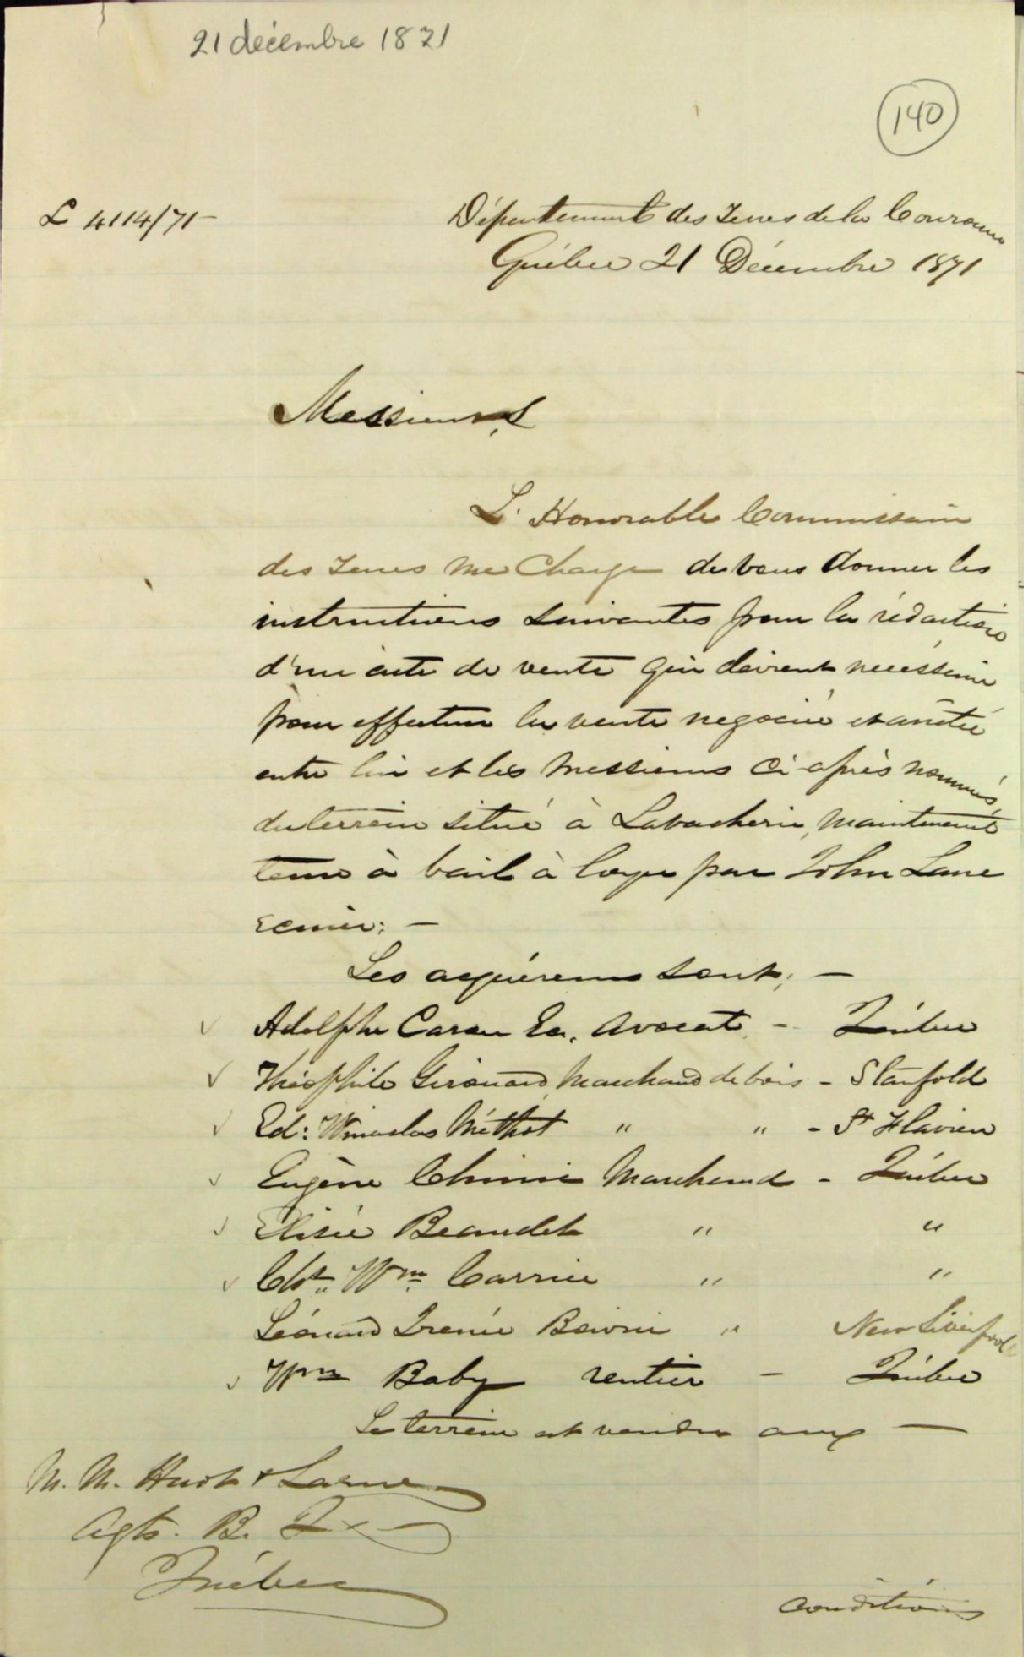 21 décembre 1871
140
L 4114/71
Département des Terres de la Couronne
Québec 21 Décembre 1871
Messieurs,
L'Honorable Commissaire
des Terres me charge de vous donner les
instructions suivantes pour la rédaction
d'un acte de vente qui devient nécéssaire
pour effectuer la vente negociée et arrêtée
entre lui et les Messieurs ci-après nommés,
du terrein situé à Lavacherie, maintenant
tenu à bail à loyer par John Lane
Ecuier: —
Les acquéreurs sont, —
Adolphe Caron Ec. Avocat - Québec
Théophile Girouard Marchand de bois - Stanfold
Ed: Winceslas Méthot " " - St Flavien
Eugène Chinic Marchand - Québec
Elisée Beaudet " "
Chs. Wm. Carrier " "
Léonard Irenée Boivin " New Liverpool
Wm Baby rentier — Québec
Le terrein est vendu aux —
M. M. Huot & Larue
Agts. B.
Québec
conditions